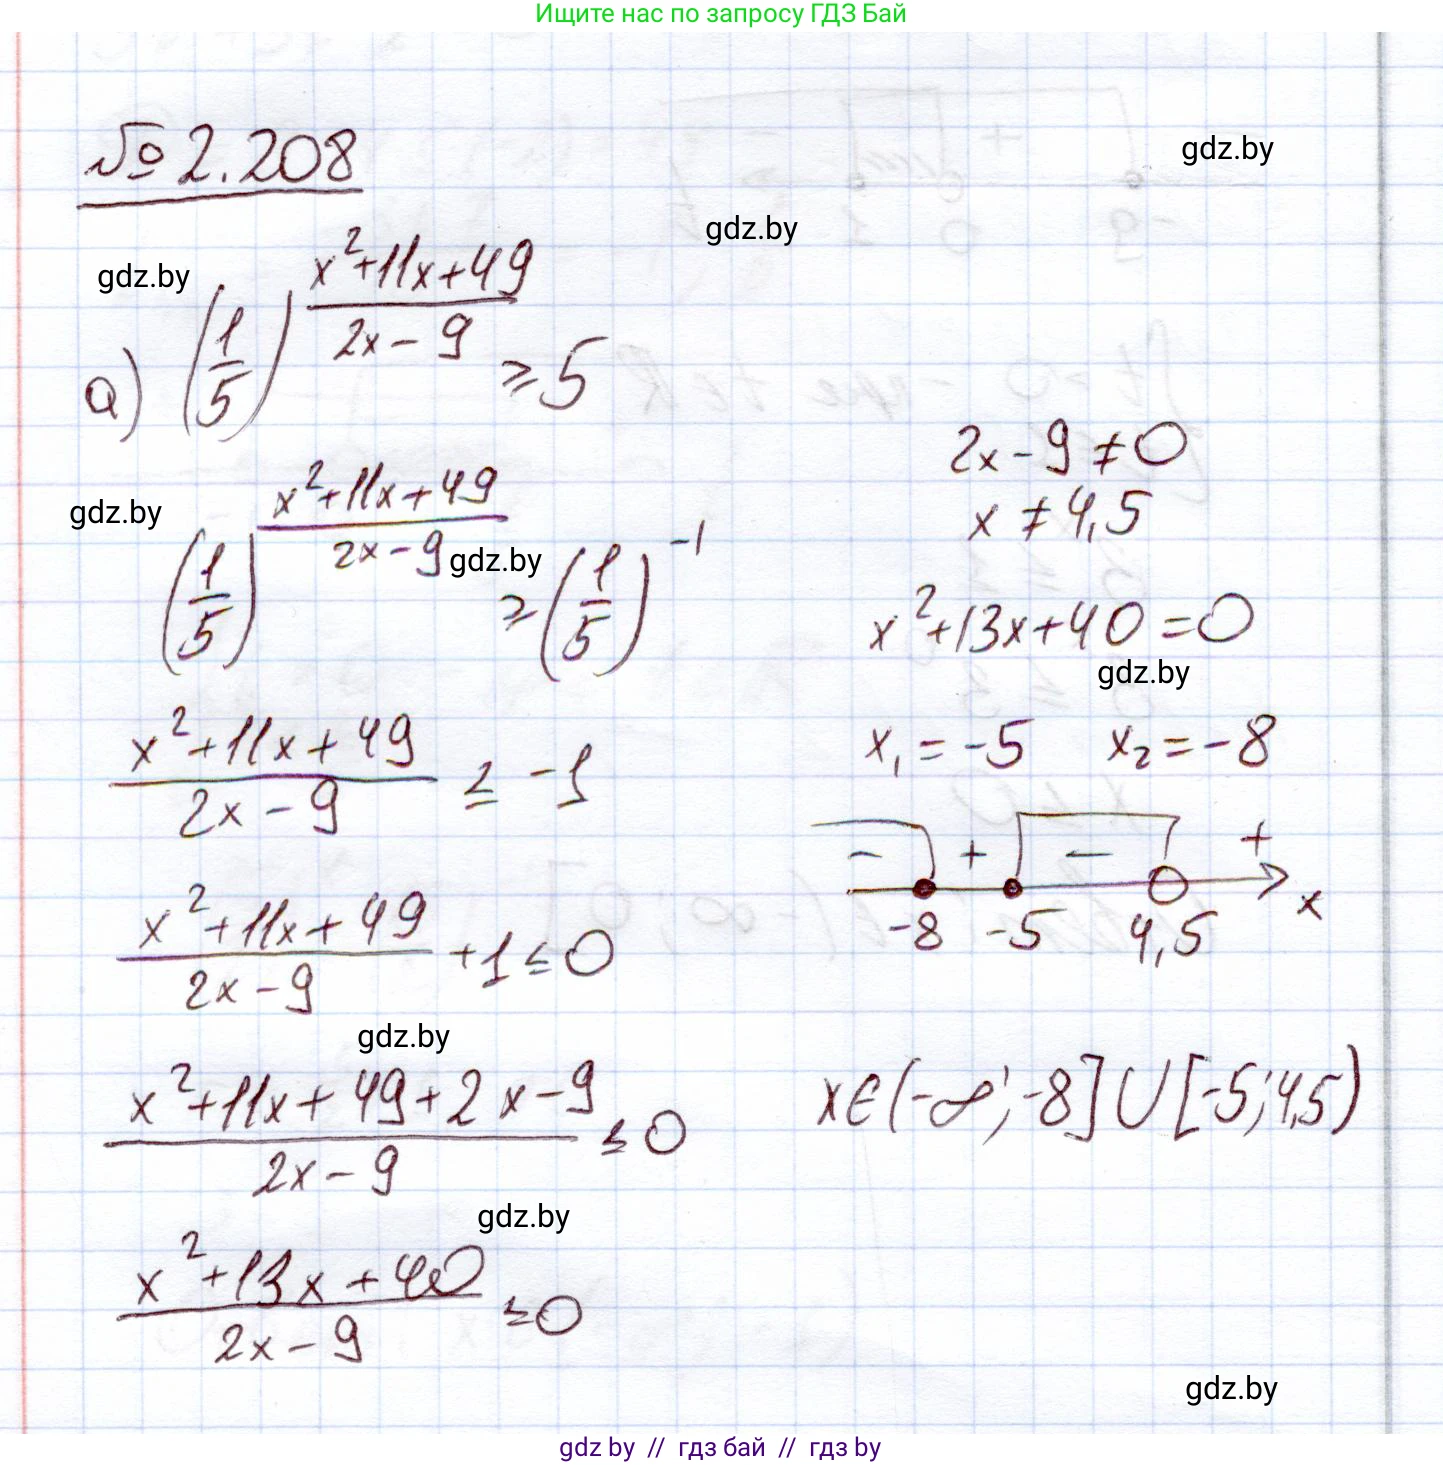 Ищите нас по запросу ГДЗ Бай
№ 2.208
gdz.by
gdz.by
gdz.by
а) (1/5)^((x²+11x+49)/(2x-9)) ≥ 5
gdz.by
(1/5)^((x²+11x+49)/(2x-9)) ≥ (1/5)^(-1)
gdz.by
(x²+11x+49)/(2x-9) ≤ -1
(x²+11x+49)/(2x-9) +1 ≤ 0
gdz.by
(x²+11x+49+2x-9)/(2x-9) ≤ 0
gdz.by
(x²+13x+40)/(2x-9) ≤ 0
2x-9 ≠ 0
x ≠ 4,5
x²+13x+40 = 0
gdz.by
x₁ = -5 x₂ = -8
- + - +
-8 -5 4,5 x
x∈(-∞;-8]∪[-5;4,5)
gdz.by
gdz by // гдз бай // гдз by